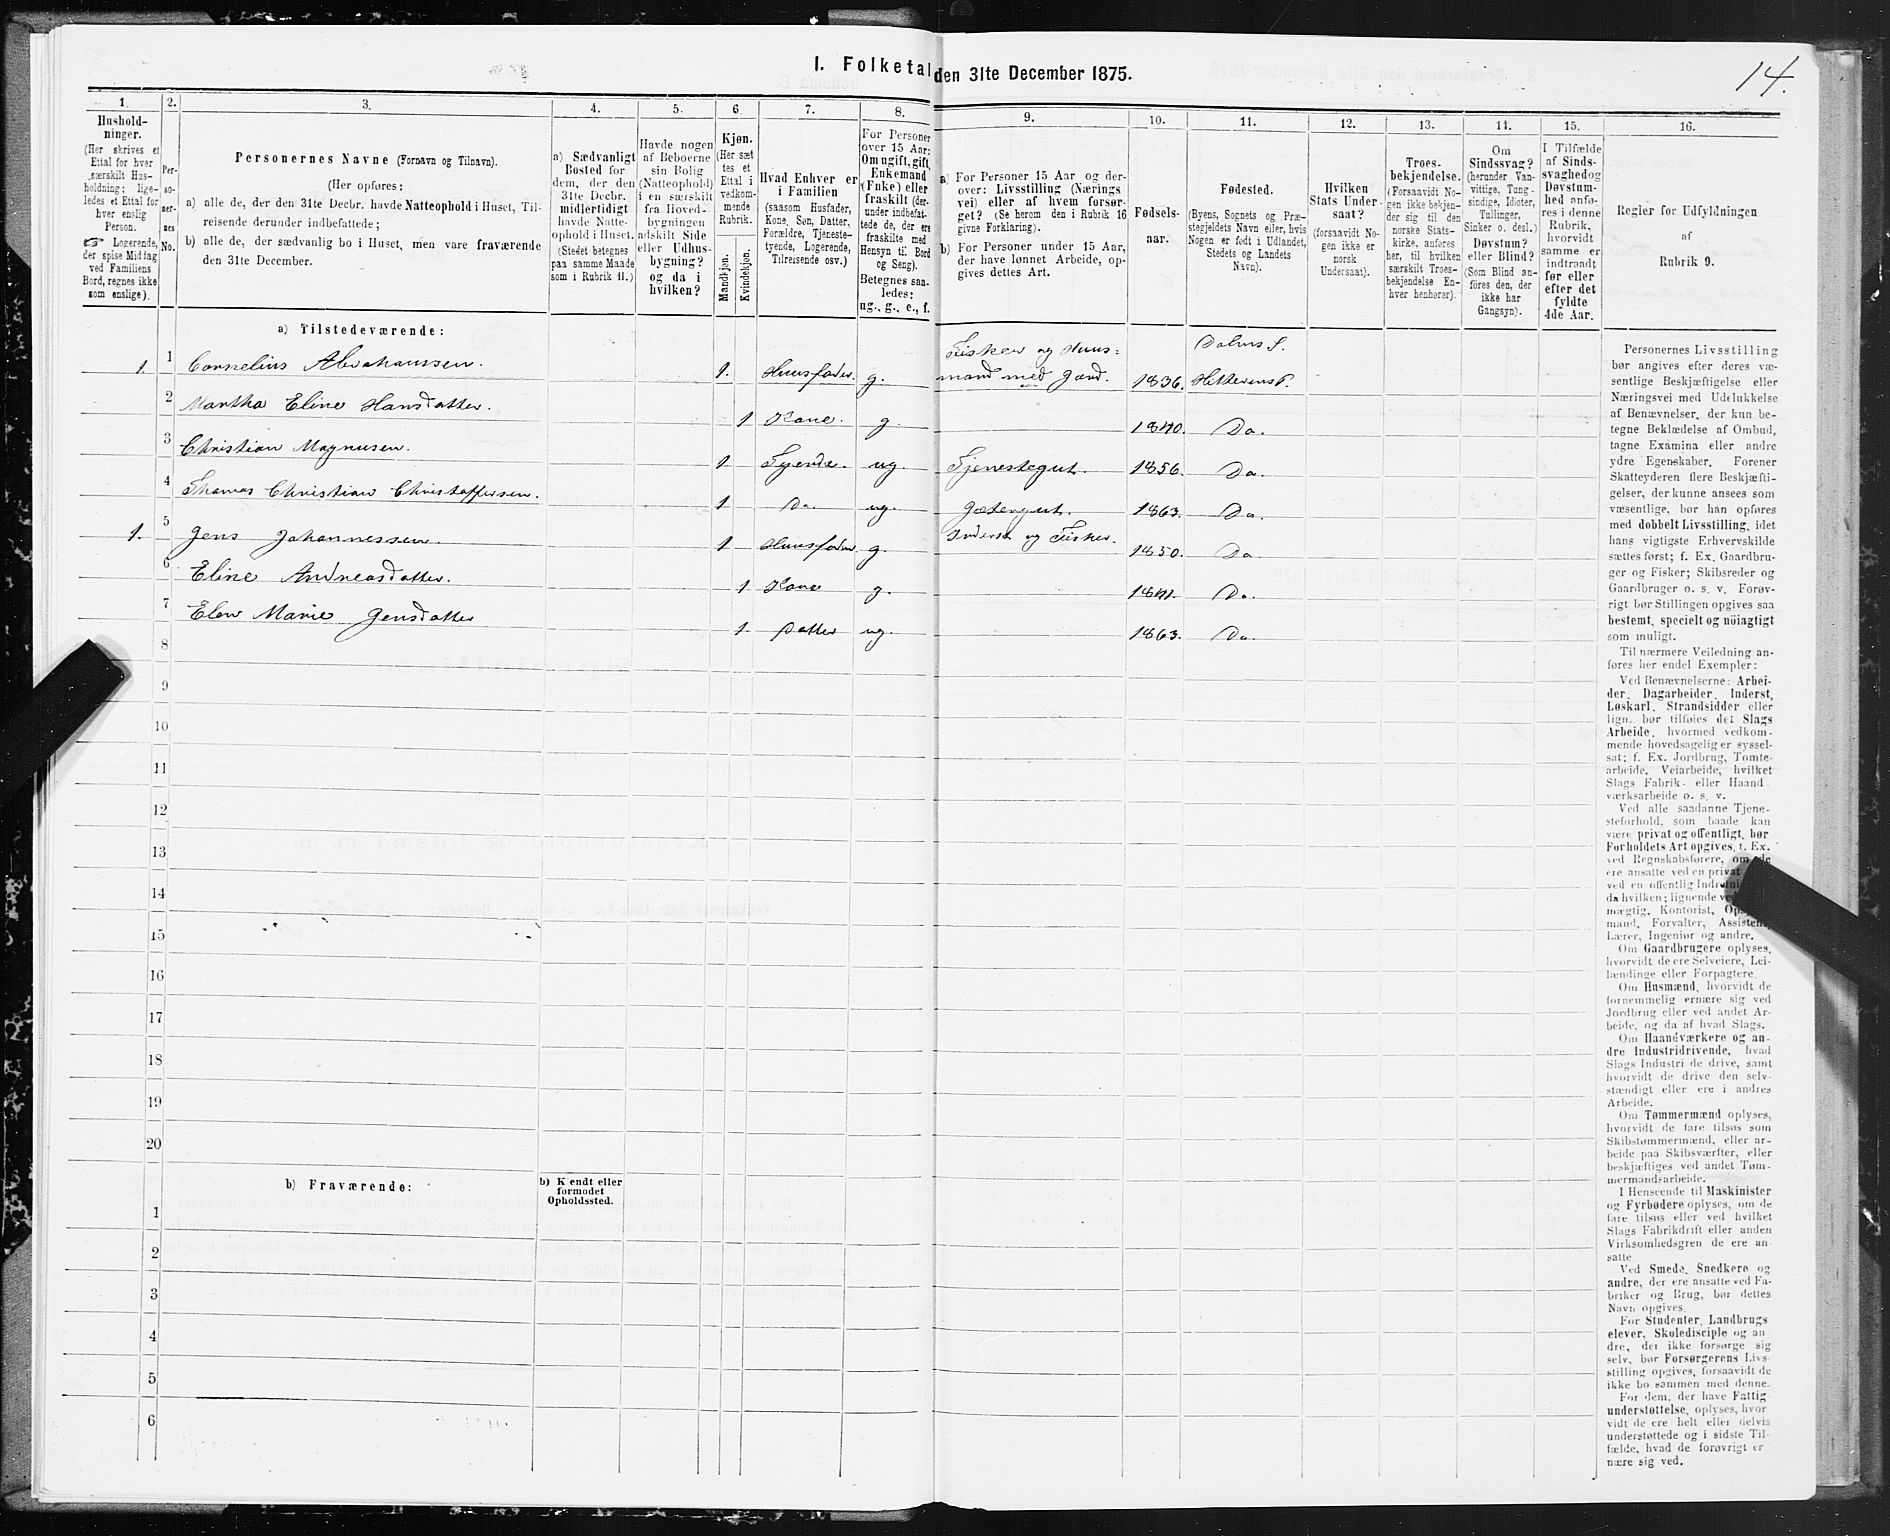 I. Folketal den 31te December 1875.
14.
1.
Hushold-
ninger.
(Her skrives et
Ettal for hver
særskilt Hus-
holdning; lige-
ledes et Ettal for
hver enslig
Person.
Logerende,
der spise Middag
ved Familiens
Bord, regnes ikke
som enslige).
2.
Per-
so-
ner-
nes
No.
3.
Personernes Navne (Fornavn og Tilnavn).
(Her opføres:
a) alle de, der den 31te Decbr. havde Natteophold i Huset, Til-
reisende derunder indbefattede;
b) alle de, der sædvanlig bo i Huset, men vare fraværende
den 31te December.
4.
a) Sædvanligt
Bosted for
dem, der den
31te Decbr.
midlertidigt
havde Natte-
ophold i Huset.
(Stedet betegnes
paa samme Maade
som i Rubrik 11.)
5.
Havde nogen
af Beboerne
sin Bolig
(Natteophold)
i en særskilt
fra Hoved-
bygningen
adskilt Side
eller Udhus-
bygning?
og da i
hvilken?
6.
Kjøn.
(Her sæt
tes et
Ettal i
vedkom-
mende
Rubrik.
Mandkjøn.
Kvindekjøn.
7.
Hvad Enhver er
i Familien
(saasom Husfader,
Kone, Søn, Datter,
Forældre, Tjeneste-
tyende, Logerende,
Tilreisende osv.)
8.
For Personer
over 15 Aar:
Om ugift, gift,
Enkemand
(Enke) eller
fraskilt (der-
under indbefat-
tede de, der ere
fraskilte med
Hensyn til Bord
og Seng).
Betegnes saa-
ledes:
ug., g., e., f.
9.
a) For Personer 15 Aar og der-
over: Livsstilling (Nærings
vei) eller af hvem forsør-
get? (Se herom den i Rubrik 16
givne Forklaring).
b) For Personer under 15 Aar,
der have lønnet Arbeide, op-
gives dettes Art.
10.
Fødsels-
aar.
11.
Fødested.
(Byens, Sognets og Præ-
stegjeldets Navn eller, hvis
Nogen er født i Udlandet,
Stedets og Landets
Navn).
12.
Hvilken
Stats Under-
saat?
(forsaavidt No-
gen ikke er
norsk
Undersaat).
13.
Troes-
bekjendelse.
(Forsaavidt No-
gen ikke bekjen-
der sig til den
norske Stats-
kirke, anføres
her, til hvilken
særskilt Troes-
bekjendelse En-
hver henhører).
14.
Om
Sindssvag?
(herunder Van-
vittige, Tung-
sindige, Idioter,
Tullinger,
Sinker o. desl.)
Døvstum?
eller Blind?
(Som Blind an-
føres den, der
ikke har
Gangsyn).
15.
I Tilfælde
af Sinds-
svaghed og
Døvstum-
hed anfø-
res i denne
Rubrik,
hvorvidt
samme er
indtraadt
før eller
efter det
fyldte
4de Aar.
16.
Regler for Udfyldningen
af
Rubrik 9.
a) Tilstedeværende:
1. 1 Cornelius Abrahamsen. 1. Huusfader. g. Fisker og Huus=
mand med Jord. 1836. Dolms S.
Hitterens P.
2 Martha Eline Hansdatter. 1 Kone. g. 1840. Do.
3 Christian Magnusen. 1 Tyende. ug. Tjenestegut. 1856. Do.
4 Thomas Christian Christoffersen. 1 Do. ug. Gjetergut. 1863. Do.
1. 5 Jens Johannessen. 1 Huusfader g. Inderst og Fisker. 1850. Do.
6 Eline Andreasdatter. 1 Kone g. 1841. Do.
7 Elen Marie Jensdatter 1. Datter ug. 1863. Do.
8
9
10
11
12
13
14
15
16
17
18
19
20
b) Fraværende:
b) Kjendt eller
formodet
Opholdssted.
1
2
3
4
5
6
Personernes Livsstilling
bør angives efter deres væ-
sentlige Beskjæftigelse eller
Næringsvei med Udelukkelse
af Benævnelser, der kun be-
tegne Beklædelse af Ombud,
tagne Examina eller andre
ydre Egenskaber. Forener
Skatteyderen flere Beskjæfti-
gelser, der kunne ansees som
væsentlige, bør han opføres
med dobbelt Livsstilling, idet
hans vigtigste Erhvervskilde
sættes først; f. Ex. Gaardbru-
ger og Fisker; Skibsreder og
Gaardbruger o. s. v. Forøv-
rigt bør Stillingen opgives saa
bestemt, specielt og nøiagtigt
som muligt.
Til nærmere Veiledning an-
føres her endel Exempler:
Ved Benævnelserne: Arbei-
der, Dagarbeider, Inderst,
Løskarl, Strandsidder eller
lign. bør tilføies det Slags
Arbeide, hvormed vedkom-
mende hovedsagelig er syssel-
sat; f. Ex. Jordbrug, Tomte-
arbeide, Veiarbeide, hvilket
Slags Fabrik- eller Haand
værksarbeide o. s. v.
Ved alle saadanne Tjene-
steforhold, som baade kan
være privat og offentligt, bør
Forholdets Art opgives, t. Ex.
ved Regnskabsførere, om de
ere ansatte ved en privat
ved en offentlig
da hvilken; lignende
mægtig, Kontorist,
mand, Forvalter, Assistent,
Lærer, Ingeniør og andre.
Om Gaardbrugere oplyses,
hvorvidt de ere Selveiere, Lei-
lændinge eller Forpagtere.
Om Husmænd, hvorvidt de
fornemmelig ernære sig ved
Jordbrug eller ved andet Ar-
beide, og da af hvad Slags.
Om Haandværkere og an-
dre Industridrivende, hvad
Slags Industri de drive, samt
hvorvidt de drive den selv-
stændigt eller ere i andres
Arbeide.
Om Tømmermænd oplyses,
hvorvidt de fare tilsøs som
Skibstømmermænd, eller ar-
beide paa Skibsværfter, eller
beskjæftiges ved andet Tøm-
mermandsarbeide.
I Henseende til Maskinister
og Fyrbødere oplyses, om de
fare tilsøs eller ved hvilket
Slags Fabrikdrift eller anden
Virksomhedsgren de ere an-
satte
Ved Smede, Snedkere og
andre, der ere ansatte ved Fa-
briker og Brug, bør dettes
Navn opgives.
For Studenter, Landbrugs
elever, Skoledisciple og an
dre, der ikke forsørge sig
selv, bør Forsørgerens Livs-
stilling opgives, forsaavidt de
ikke bo sammen med denne.
For dem, der have Fattig
understøttelse, oplyses, hvor
vidt de ere helt eller delvis
understøttede og i sidste Til-
fælde, hvad de forøvrigt er
nære sig ved.